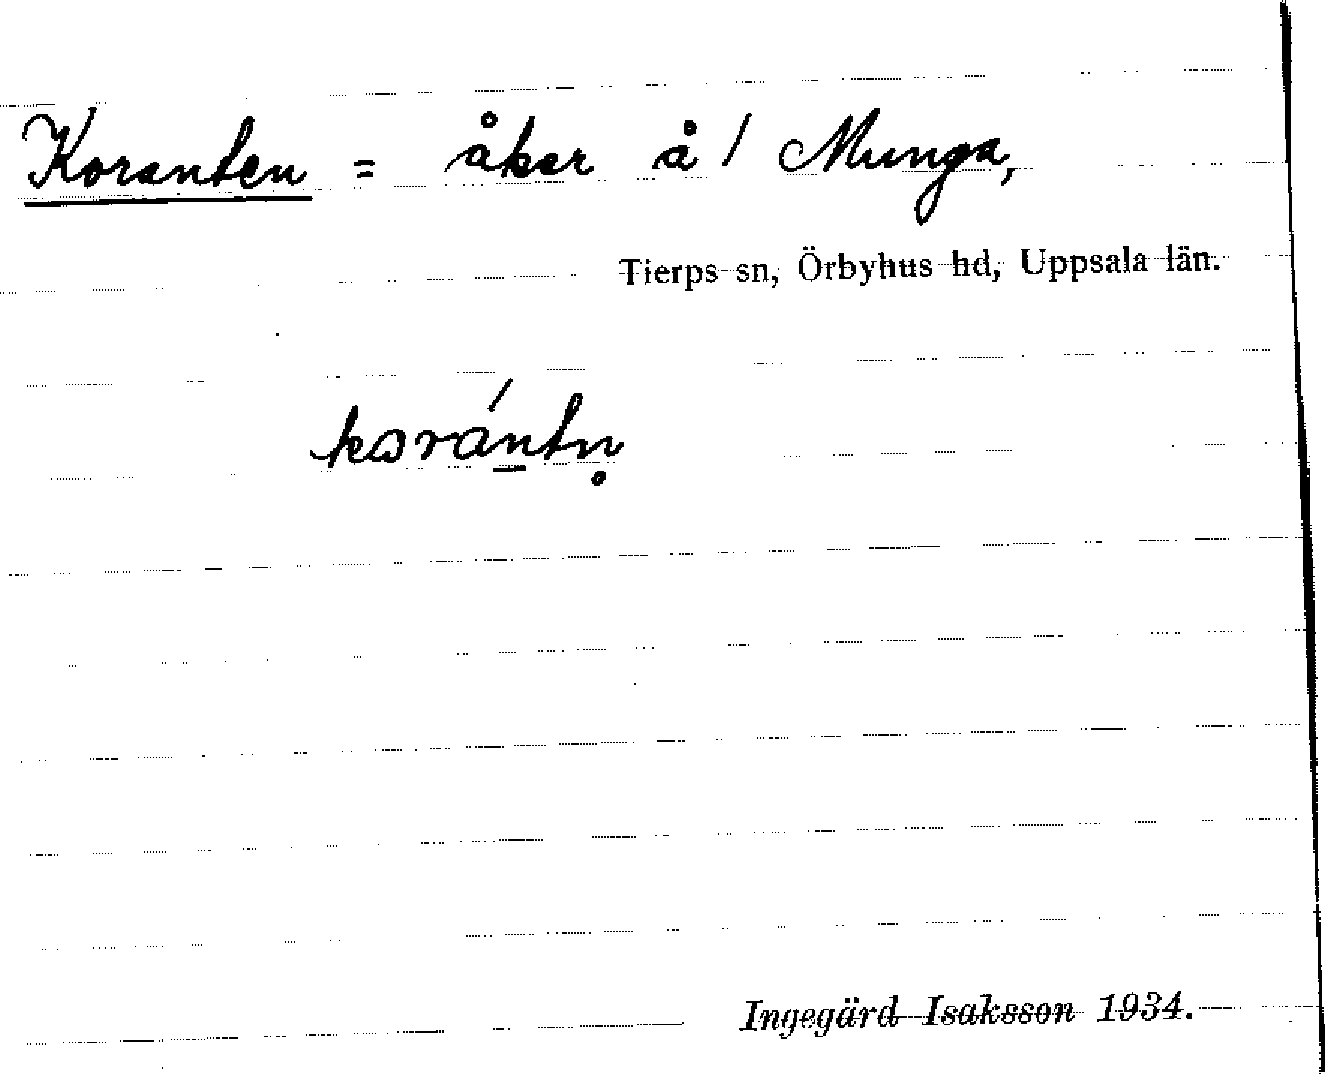 Koranten = åker å / Munga,
Tierps sn, Örbyhus hd, Uppsala län.
korántn̥
Ingegärd Isaksson 1934.